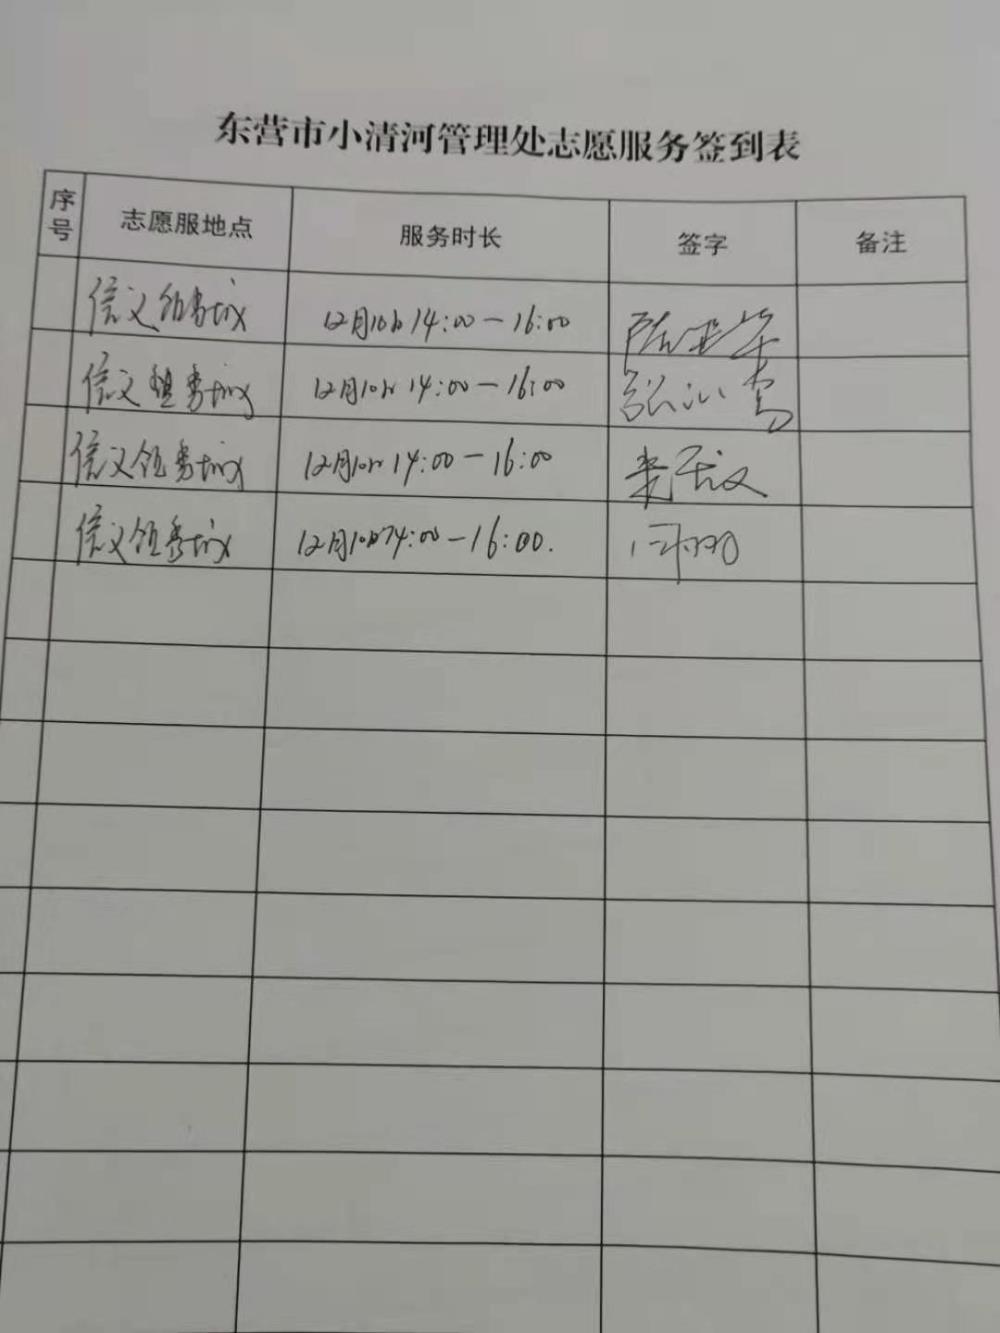 东营市小清河管理处志愿服务签到表
序号 志愿服地点 服务时长 签字 备注
信义领秀城 12月10日 14:00—16:00
信义领秀城 12月10日 14:00—16:00
信义领秀城 12月10日 14:00—16:00
信义领秀城 12月10日 14:00—16:00.